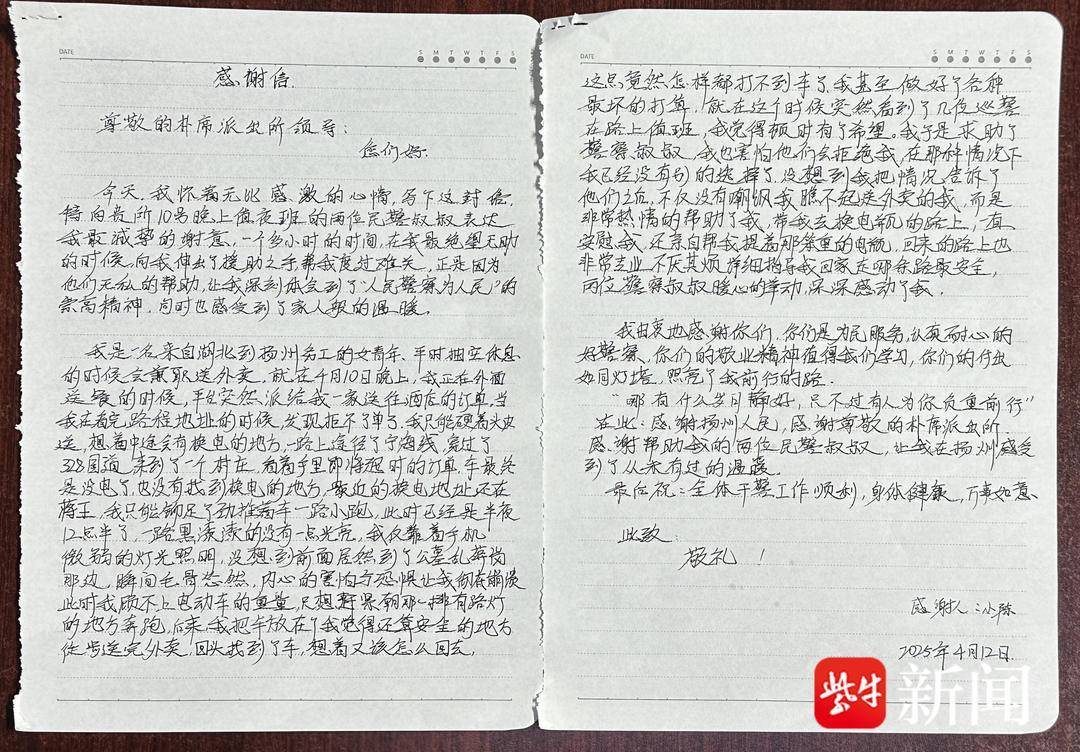 DATE
S M T W T F S
感谢信
尊敬的朴席派出所领导：
您们好.
今天，我怀着无比感激的心情，写下这封信，
特向贵所10号晚上值夜班的两位民警叔叔表达
我最诚挚的谢意，一个多小时的时间，在我最绝望无助
的时候，向我伸出了援助之手帮我度过难关，正是因为
他们无私的帮助，让我深刻体会到了"人民警察为人民"的
崇高精神，同时也感受到了家人般的温暖.
我是一名来自湖北到扬州务工的女青年、平时抽空休息
的时候会兼职送外卖，就在4月10日晚上，我正在外面
送餐的时候，平台突然派给我一家送往酒店的订单，当
我在看完路程地址的时候，发现拒不了单了.我只能硬着头皮
送，想着中途会有换电的地方，一路上途径了宁海线，穿过了
328国道，来到了一个村庄，看着手里即将超时的订单，车最终
是没电了，也没有找到换电的地方，最近的换电地址还在
蒋王，我只能铆足了劲推着车一路小跑，此时已经是半夜
12点半了，一路黑漆漆的没有一点光亮，我仅靠着手机
微弱的灯光照明，没想到前面居然到了公墓乱葬岗
那边，瞬间毛骨悚然，内心的害怕与恐惧让我彻底崩溃
此时我顾不上电动车的重量，只想赶紧朝那一排有路灯
的地方奔跑，后来，我把车放在了我觉得还算安全的地方
徒步送完外卖，回头找到了车，想着又该怎么回去，
DATE
S M T W T F S
这点竟然怎样都打不到车了，我甚至做好了各种
最坏的打算，就在这个时候突然看到了几位巡警
在路上值班，我觉得顿时有了希望。我于是求助了
警察叔叔，我也害怕他们会拒绝我，在那种情况下
我已经没有别的选择了，没想到我把情况告诉了
他们之后，不仅没有嘲讽我瞧不起送外卖的我，而是
非常热情的帮助了我，带我去换电瓶的路上，一直
安慰我，还亲自帮我提着那笨重的电瓶，回来的路上也
非常专业不厌其烦详细指导我回家走哪条路最安全，
两位警察叔叔暖心的举动，深深感动了我.
我由衷地感谢你们，你们是为民服务，认真耐心的
好警察、你们的敬业精神值得我们学习，你们的付出
如同灯塔，照亮了我前行的路.
"哪有什么岁月静好，只不过有人为你负重前行"
在此：感谢扬州人民，感谢尊敬的朴席派出所.
感谢帮助我的两位民警叔叔，让我在扬州感受
到了从未有过的温暖.
最后祝：全体干警工作顺利，身体健康，万事如意
此致：
敬礼！
感谢人：小陈
2025年4月12日.
紫牛新闻